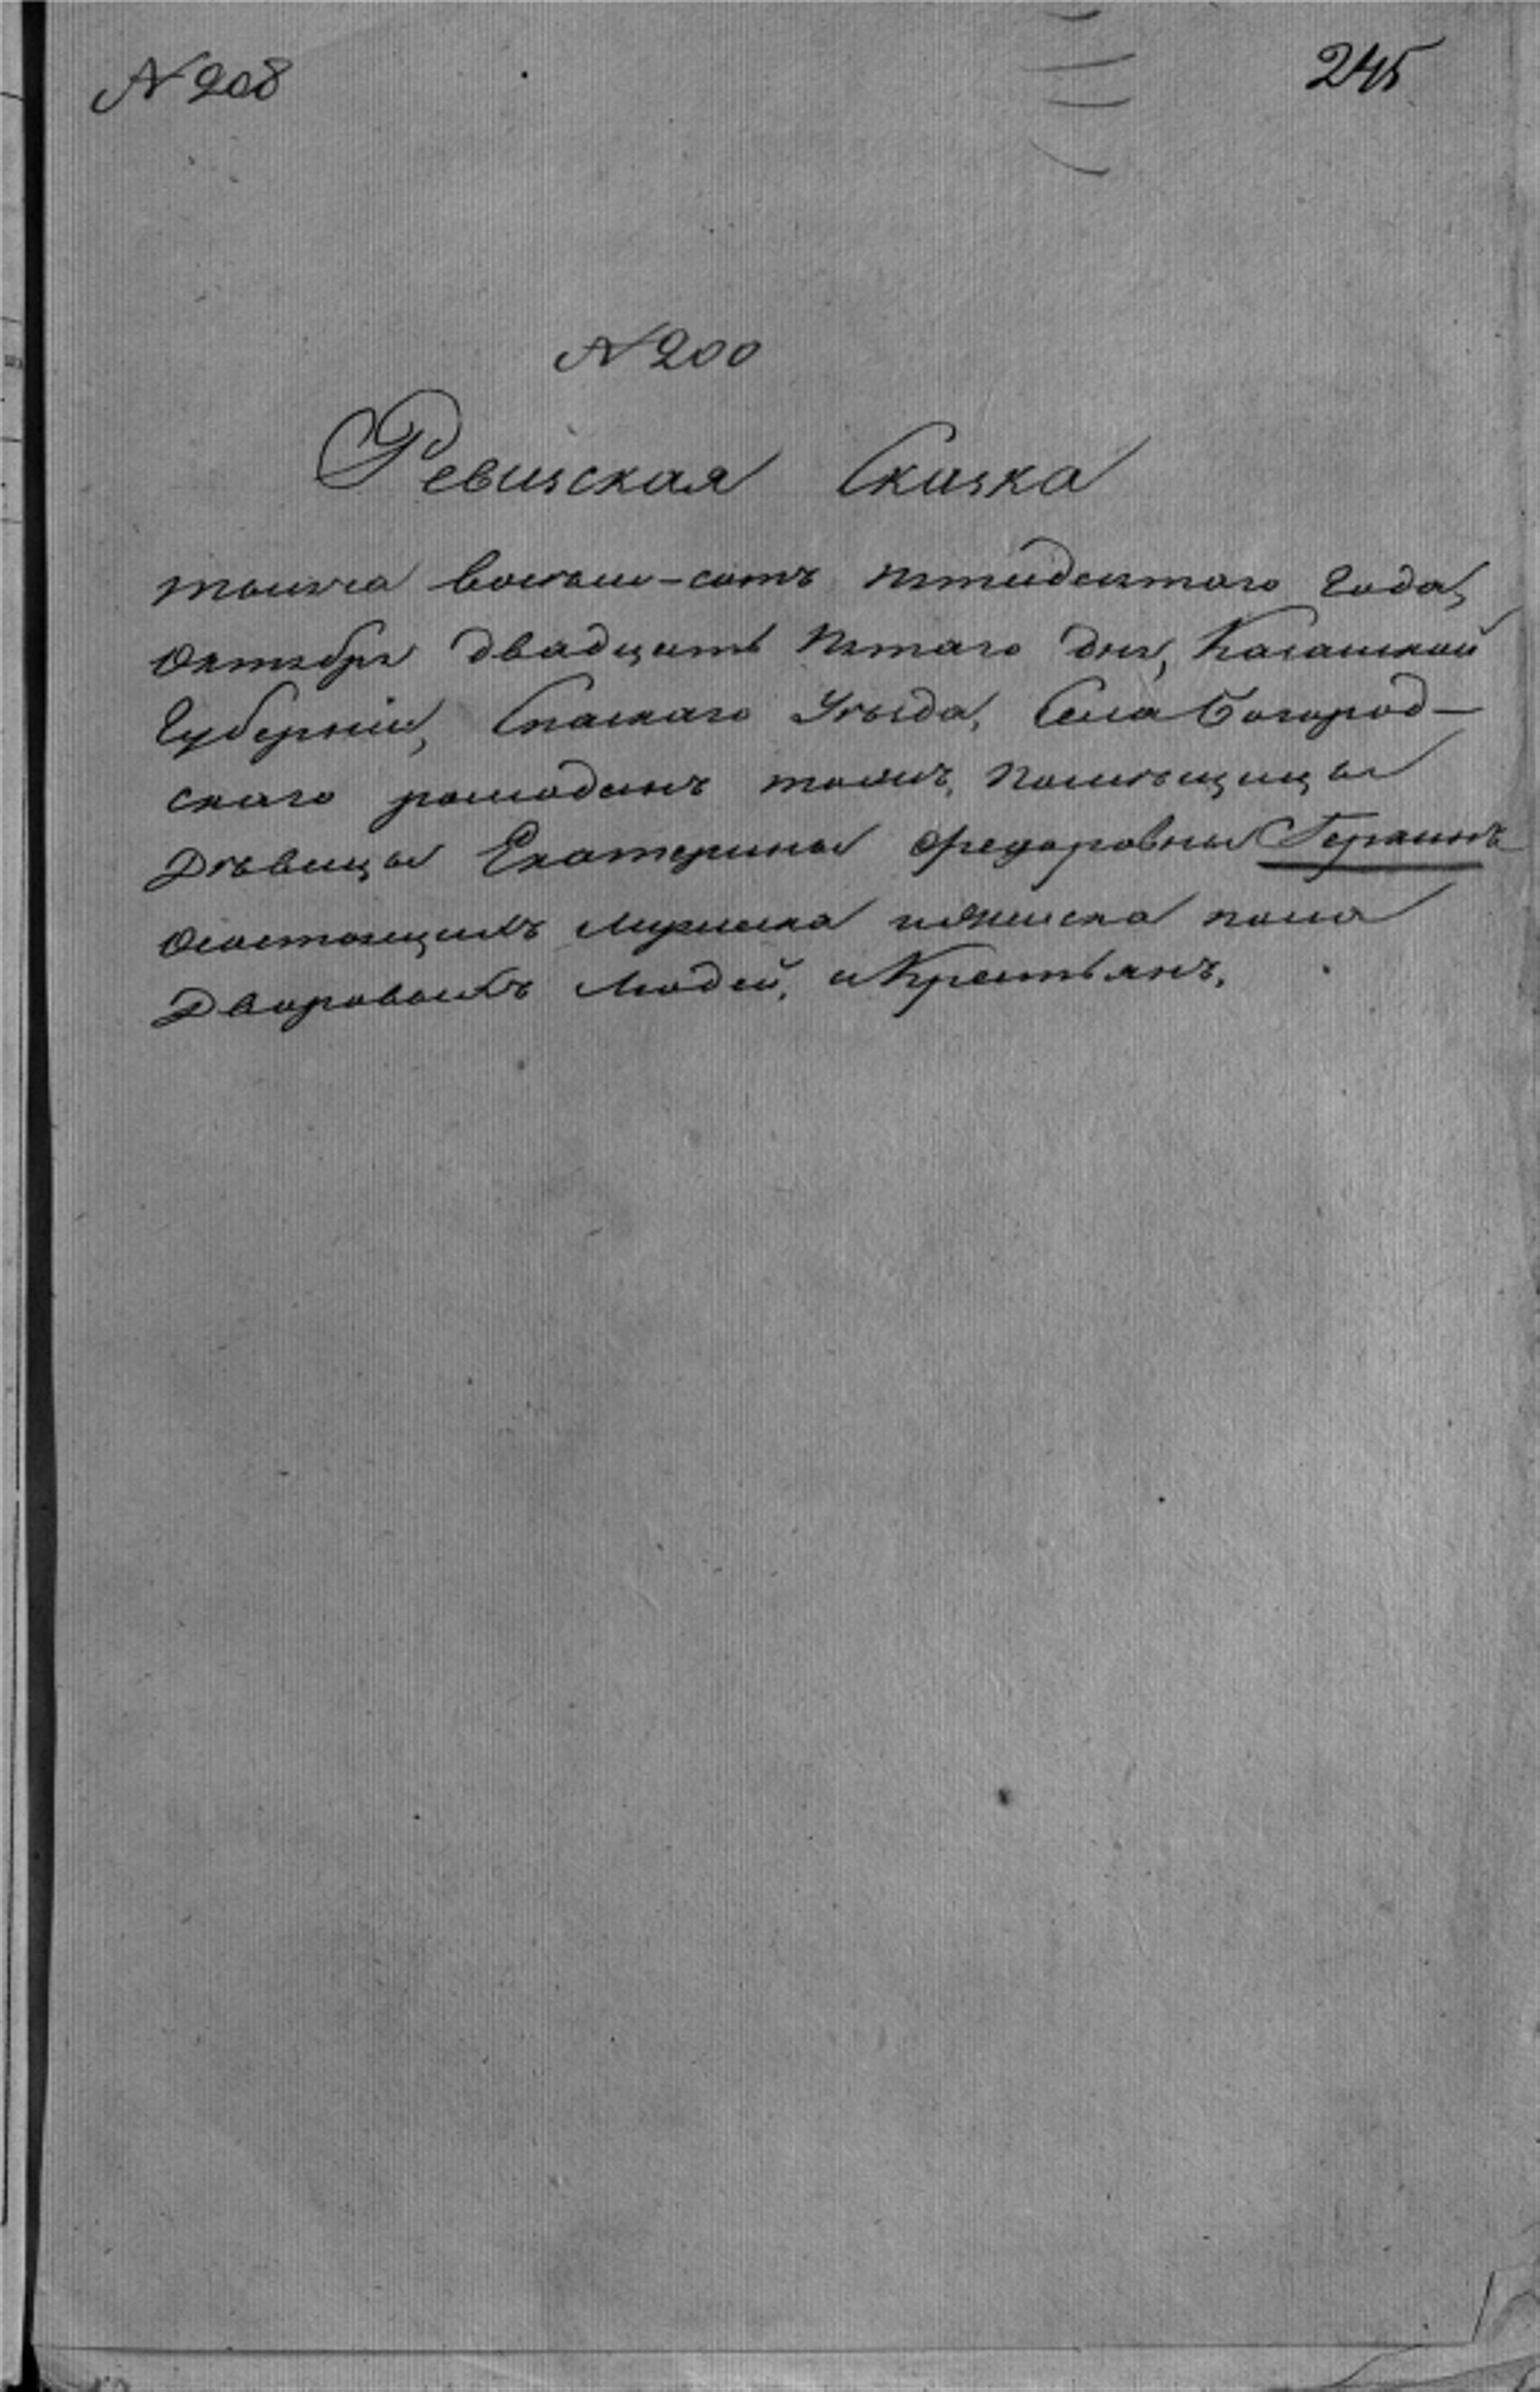 № 208
245
№ 200
Ревизская Сказка
тысяча восемь-сотъ пятидесятаго года,
Октября двадцать пятаго дня, Казанской
Губерніи, Спаскаго Уѣзда, Села Богород-
скаго ромодань тожъ, помѣщицы
Дѣвицы Екатерины Федоровны
о состоящихъ мужеска и женска пола
Дворовыхъ людей, и Крестьянъ.